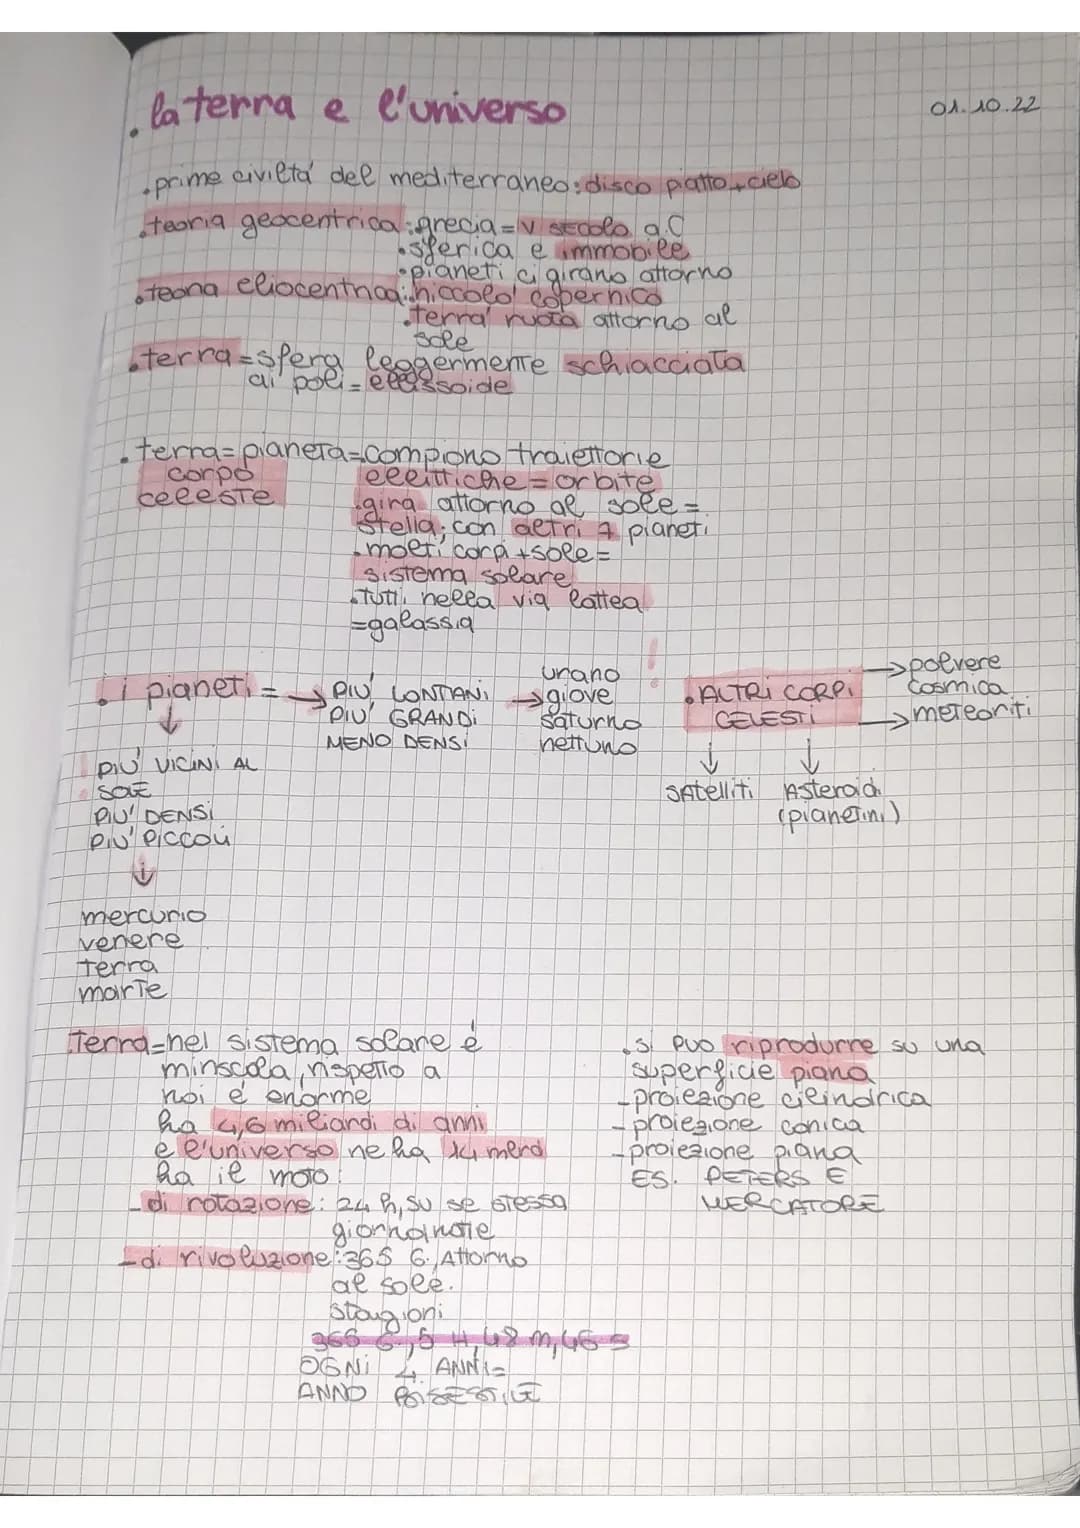 .la terra e l'universo
01.10.22
.prime civiltà del mediterraneo: disco piatto + cielo
.teoria geocentrica: grecia = V secolo a.C
.sferica e immobile
.pianeti ci girano attorno
.teoria eliocentrica: niccolo' copernico
.terra ruota attorno al
sole
.terra = sfera leggermente schiacciata
ai poli = elissoide
.terra = pianeta = compiono traiettorie
corpo
celeste
ellittiche = orbite
.gira attorno al sole =
stella, con altri 7 pianeti
.molti corpi + sole =
sistema solare
.tutti nella via lattea
= galassia
.i pianeti = → PIU' LONTANI
PIU' GRANDI
MENO DENSI
→ urano
giove
saturno
nettuno
!
.ALTRI CORPI
CELESTI
→ polvere
cosmica
→ meteoriti
↓ satelliti
↓ Asteroidi
(pianetini)
↓
! PIU' VICINI AL
SOLE
PIU' DENSI
PIU' PICCOLI
↓
mercurio
venere
terra
marte
.Terra = nel sistema solare é
minscola, rispetto a
noi é enorme
ha 4,6 miliardi di anni
e l'universo ne ha 14 merd
ha il moto:
- di rotazione: 24 h, su se stessa
giorno notte
- di rivoluzione: 365 G., Attorno
al sole.
stagioni
365 G., 5 H, 48 m, 46 s
OGNI 4 ANNI =
ANNO BISESTILE
.si puo riprodurre su una
superficie piana
- proiezione cilindrica
- proiezione conica
- proiezione piana
ES. PETERS E
MERCATORE